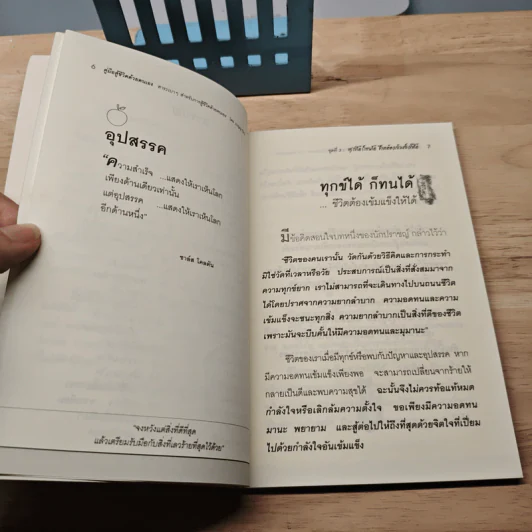 ๖ คู่มือสู้ชีวิตด้วยตนเอง
อุปสรรค
“ความสำเร็จ ...แสดงให้เราเห็นโลก
เพียงด้านเดียวเท่านั้น
แต่อุปสรรค ...แสดงให้เราเห็นโลก
อีกด้านหนึ่ง”
“จงหวังแต่สิ่งที่ดีที่สุด
แล้วเตรียมรับมือกับสิ่งที่เลวร้ายที่สุดไว้ด้วย”
ทุกข์ได้ ก็ทนได้
... ชีวิตต้องเข้มแข็งให้ได้
มีข้อคิดสอนใจบทหนึ่งของนักปราชญ์ กล่าวไว้ว่า
“ชีวิตของคนเรานั้น วัดกันด้วยวิธีคิดและการกระทำ
มิใช่วัดที่เวลาหรือวัย ประสบการณ์เป็นสิ่งที่สั่งสมมาจาก
ความทุกข์ยาก เราไม่สามารถที่จะเดินทางไปบนถนนชีวิต
ได้โดยปราศจากความยากลำบาก ความอดทนและความ
เข้มแข็งจะชนะทุกสิ่ง ความยากลำบากเป็นสิ่งที่ดีของชีวิต
เพราะมันจะบีบคั้นให้มีความอดทนและมุมานะ”
ชีวิตของเราเมื่อมีทุกข์หรือพบกับปัญหาและอุปสรรค หาก
มีความอดทนเข้มแข็งเพียงพอ จะสามารถเปลี่ยนจากร้ายให้
กลายเป็นดีและพบความสุขได้ ฉะนั้นจึงไม่ควรท้อแท้หมด
กำลังใจหรือเลิกล้มความตั้งใจ ขอเพียงมีความอดทน
มานะ พยายาม และสู้ต่อไปให้ถึงที่สุดด้วยจิตใจที่เปี่ยม
ไปด้วยกำลังใจอันเข้มแข็ง